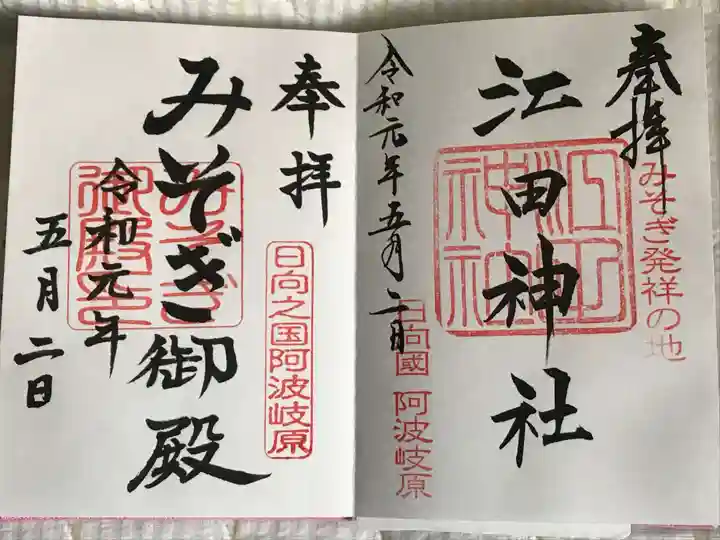 奉拝
みそぎ発祥の地
江田神社
江田神社
日向國 阿波岐原
令和元年五月二日
奉拝
日向之国阿波岐原
みそぎ御殿
みそぎ御殿之印
令和元年
五月二日